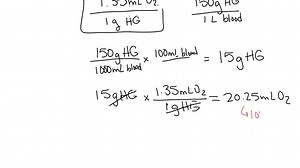 1.35mL O₂ / 1g HG
150g HG / 1L blood
150g HG / 1000mL blood × 100mL blood = 15g HG
15g HG × 1.35mL O₂ / 1g HG = 20.25mL O₂